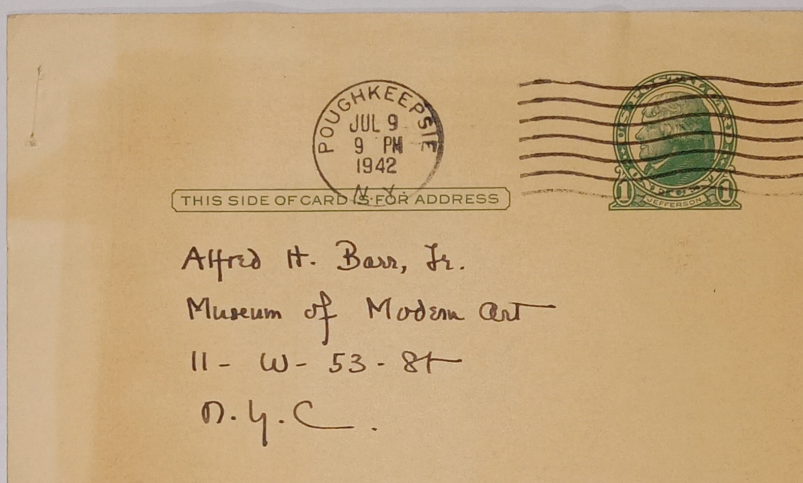 POUGHKEEPSIE
JUL 9
9 PM
1942
N.Y.
1 JEFFERSON 1
THIS SIDE OF CARD IS FOR ADDRESS
Alfred H. Barr, Jr.
Museum of Modern Art
11 - W - 53 - St
N.Y.C.